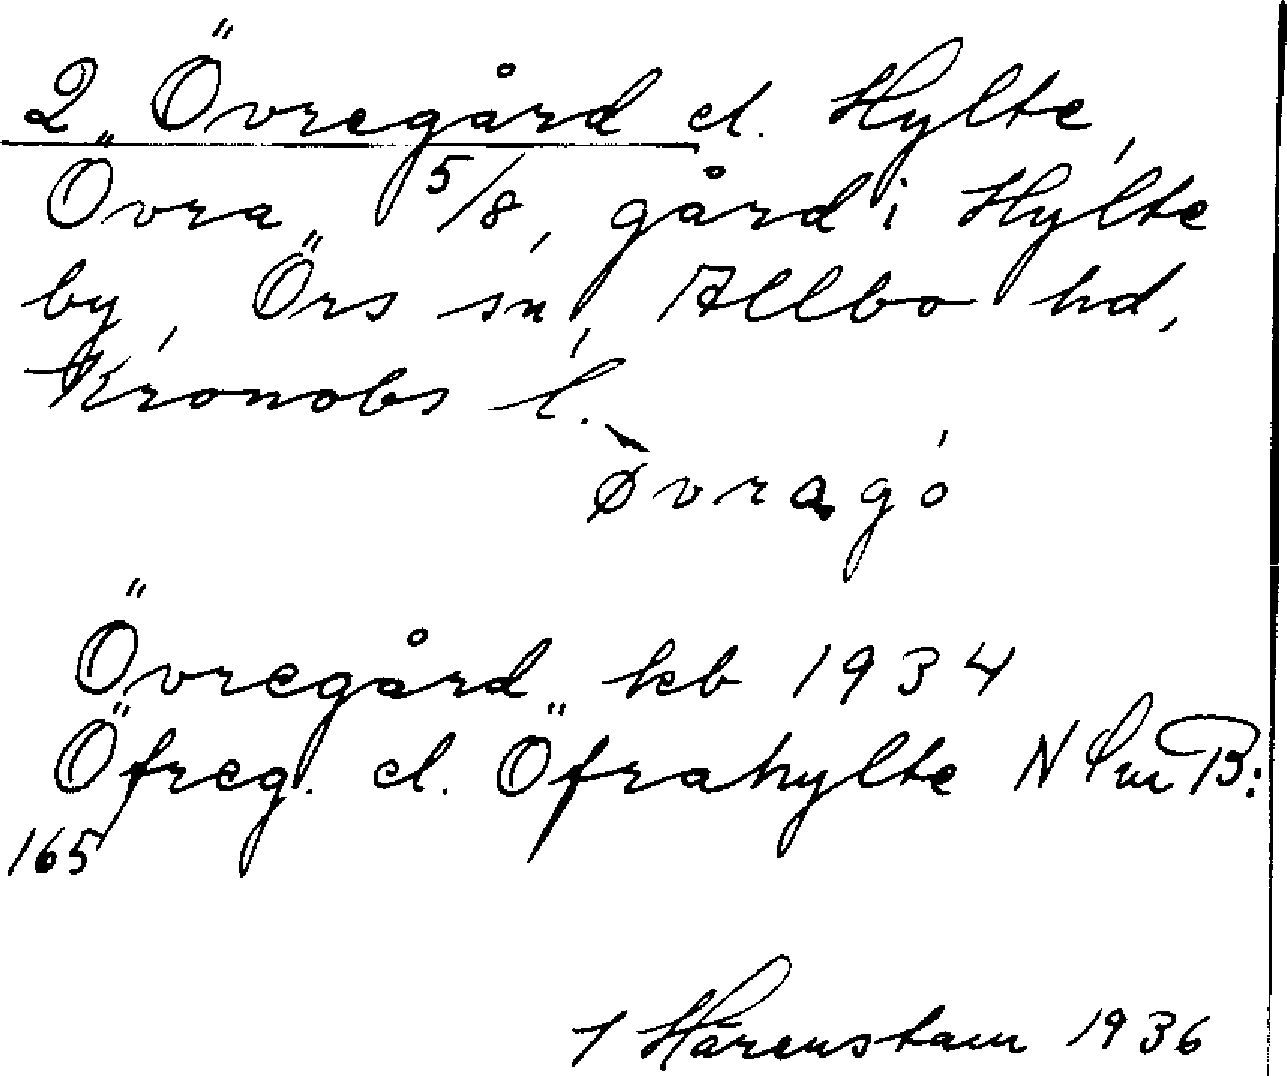 2 Övregård el. Hylte,
Övra 5/8, gård i Hylte
by, Örs sn, Allbo hd,
Kronobs l.
Övregård kb 1934
Öfreg. el. Öfrahylte N Sm B:
165
I Härenstam 1936